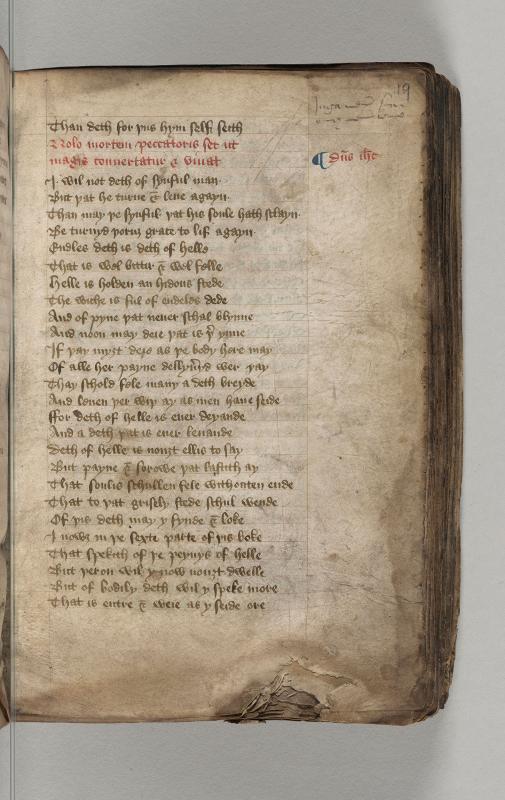 19
Than deth for þus hym self seith
Nolo mortem peccatoris set ut
magis conuertatur & viuat
¶ dn̄s ih̄c
I wil not deth of synful man
But þat he turne & leue agayn
Than may þe synful þat his soule hath sclayn
Be turnyd þoruȝ grace to lif agayn
Endles deth is deth of helle
That is wol bittir & wol felle
Helle is holden an hidous stede
The wiche is ful of endeles dede
And of pyne þat neuer schal blynne
And noon may deie þat is þ͛ ynne
If þay myȝt deȝe as þe body here may
Of alle her payne delyu͛yd wer þay
Thay schold fele many a deth breyde
And lyuen þer wiþ ay as men haue seide
Ffor deth of helle is euer deyande
And a deth þat is euer leuande
Deth of helle is nouȝt ellis to say
But payne & sorowe þat lastith ay
That soulis schullen fele withouten ende
That to þat grisely stede schul wende
Of þis deth may y fynde & loke
I nowȝ in þe sexte parte of þis boke
That spekith of þe peynys of helle
But þeron wil y now nouȝt dwelle
But of bodily deth wil y speke more
That is entre & weie as y seide ore